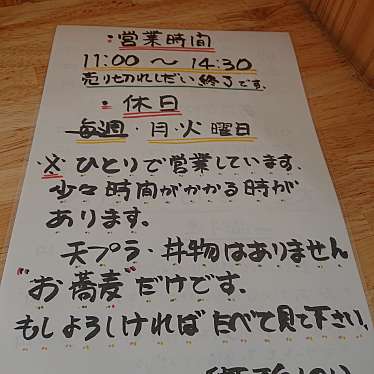 :営業時間
11:00 〜 14:30
売り切れしだい終了です.
・休日
毎週・月・火曜日
※ひとりで営業しています.
少々時間がかかる時が
あります.
天プラ・丼物はありません
"お蕎麦"だけです.
もしよろしければたべて見て下さい.